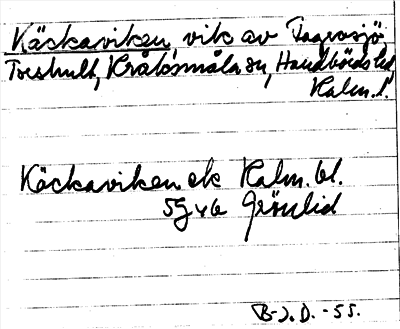 Käckaviken, vik av Fagrasjö
Toeshult, Kråksmåla sn, Handbörds hd
Kalm. l.
Käckaviken ek Kalm. bl.
5G v6 Grönlid
B-J. D. -55.